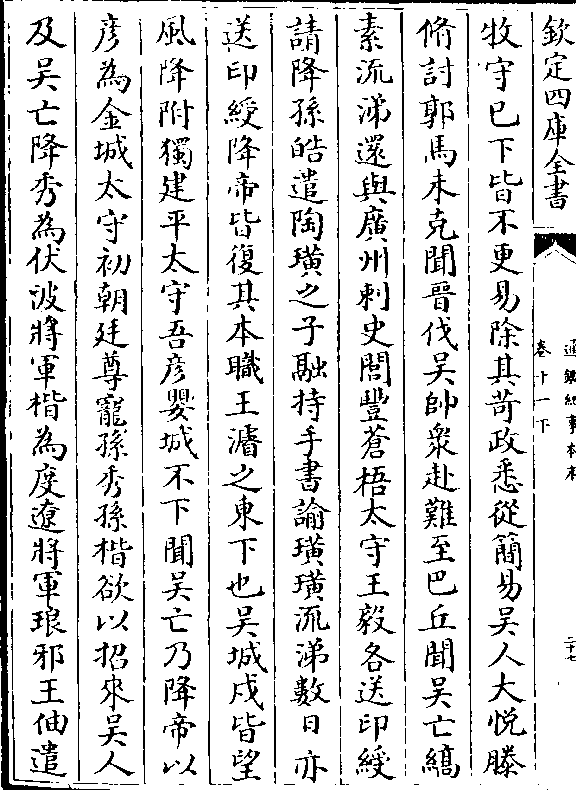 欽定四庫全書
通鑑紀事本末
卷十一下
二十七
牧守已下皆不更易除其苛政悉從簡易吳人大悅滕
脩討郭馬未克聞晉伐吳帥衆赴難至巴丘聞吳亡縞
素流涕還與廣州刺史閭豐蒼梧太守王毅各送印綬
請降孫皓遣陶璜之子融持手書諭璜璜流涕數日亦
送印綬降帝皆復其本職王濬之東下也吳城戍皆望
風降附獨建平太守吾彦嬰城不下聞吳亡乃降帝以
彦為金城太守初朝廷尊寵孫秀孫楷欲以招來吳人
及吳亡降秀為伏波將軍楷為度遼將軍琅邪王伷遣